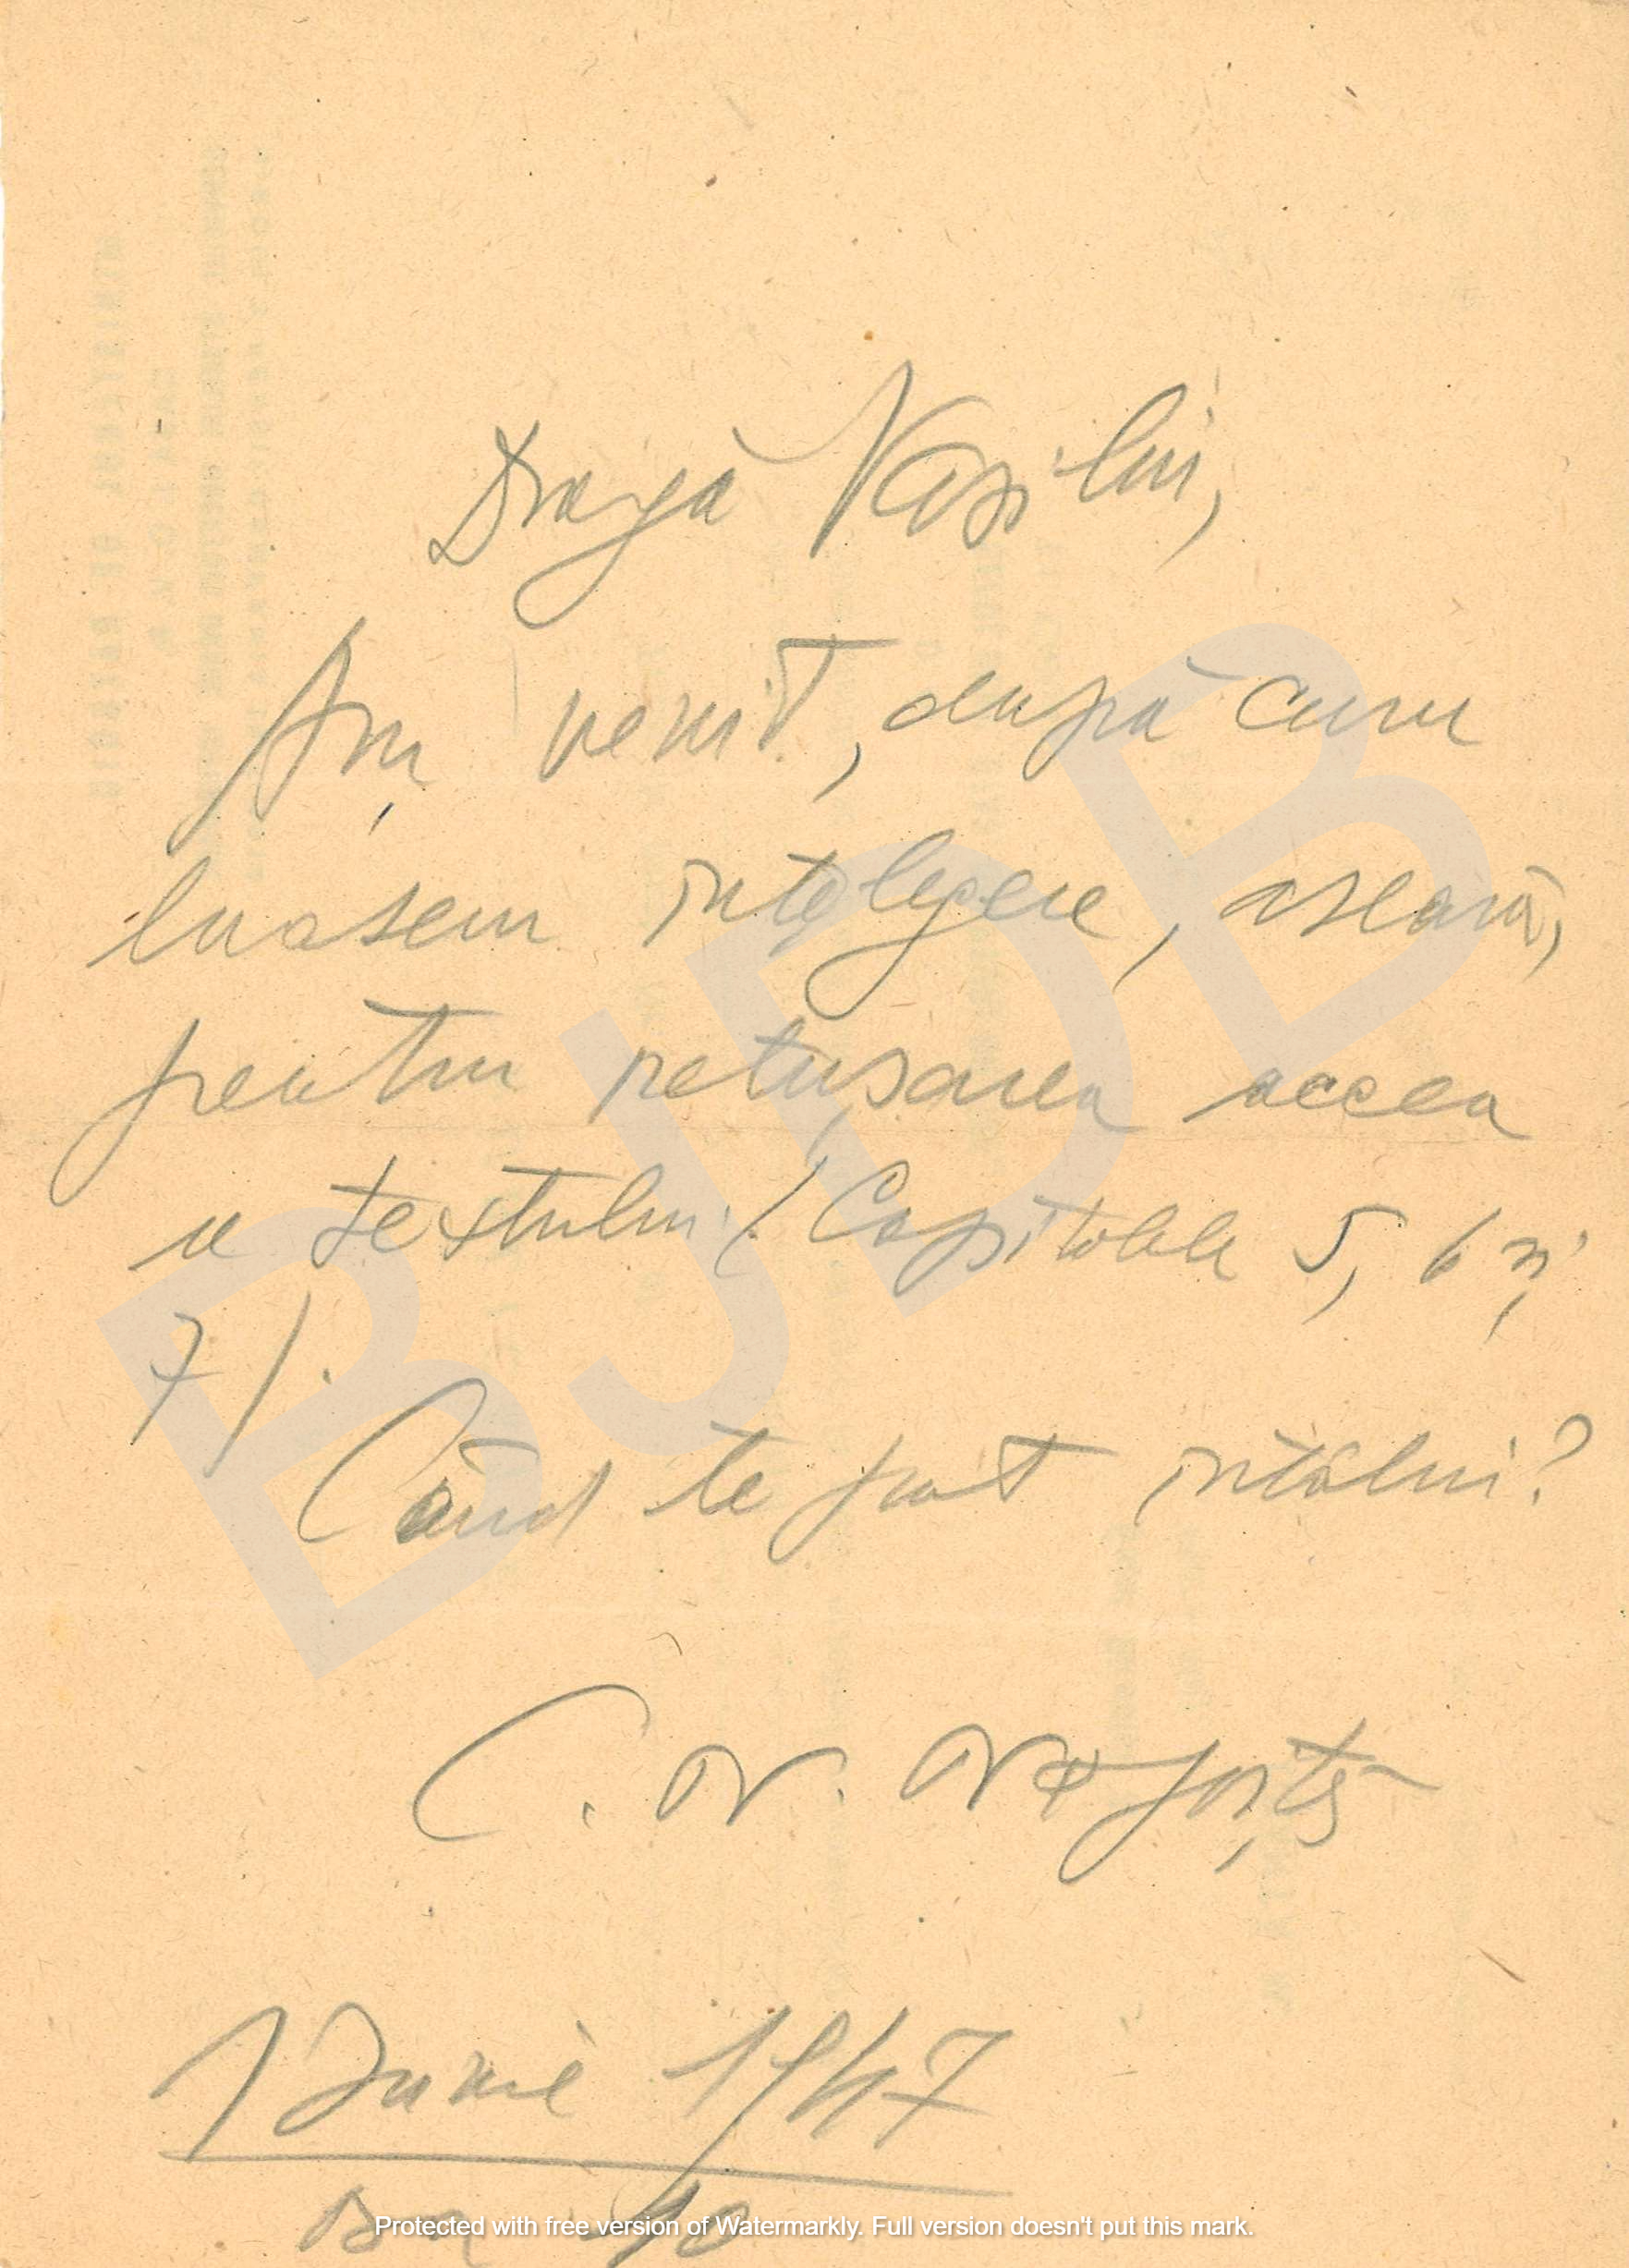 Dragă Vasiliu,
Am venit, după cum
luasem înțelegere, aseară,
pentru retușarea aceea
a textului (Capitolele 5, 6 și
7).
Când te pot întâlni?
C.
1 Iunie 1947
Ora 10
BJDB
Protected with free version of Watermarkly. Full version doesn't put this mark.